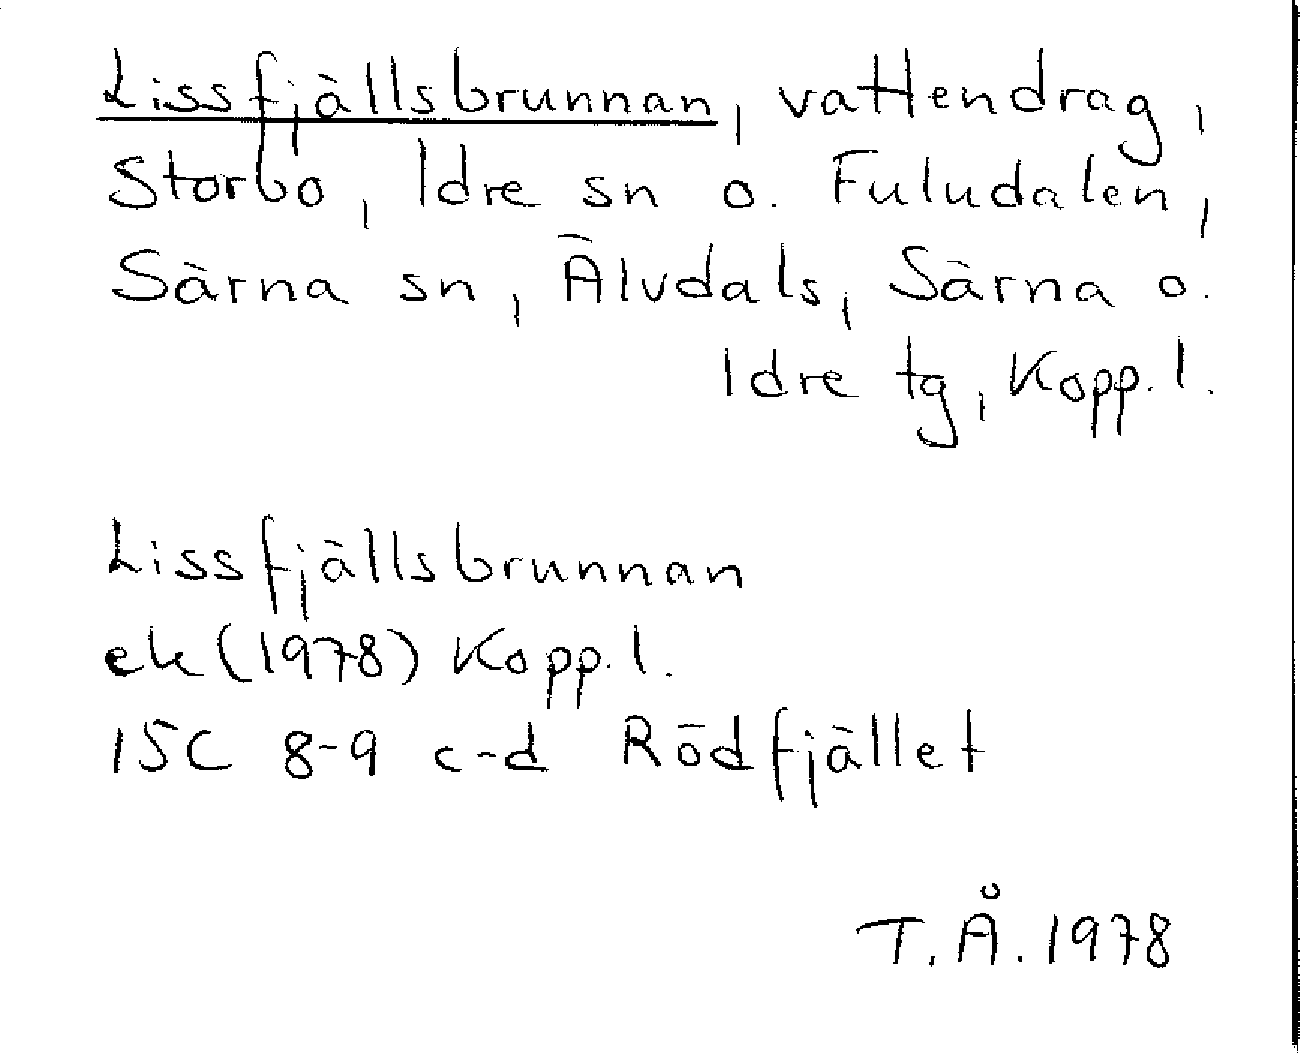 Lissfjällsbrunnan, vattendrag,
Storbo, Idre sn o. Fuludalen,
Särna sn, Älvdals, Särna o.
Idre tg, Kopp. l.
Lissfjällsbrunnan
ek (1978) Kopp. l.
15C 8-9 c-d Rödfjället
T. Å. 1978